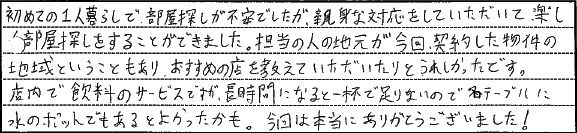 初めての1人暮らしで、部屋探しが不安でしたが、親身な対応をしていただいて、楽し
く部屋探しをすることができました。担当の人の地元が今回、契約した物件の
地域ということもあり、おすすめの店を教えていただいたりとうれしかったです。
店内で飲料のサービスですが、長時間になると一杯で足りないので各テーブルに
水のポットでもあるとよかったかも。今回は本当にありがとうございました!